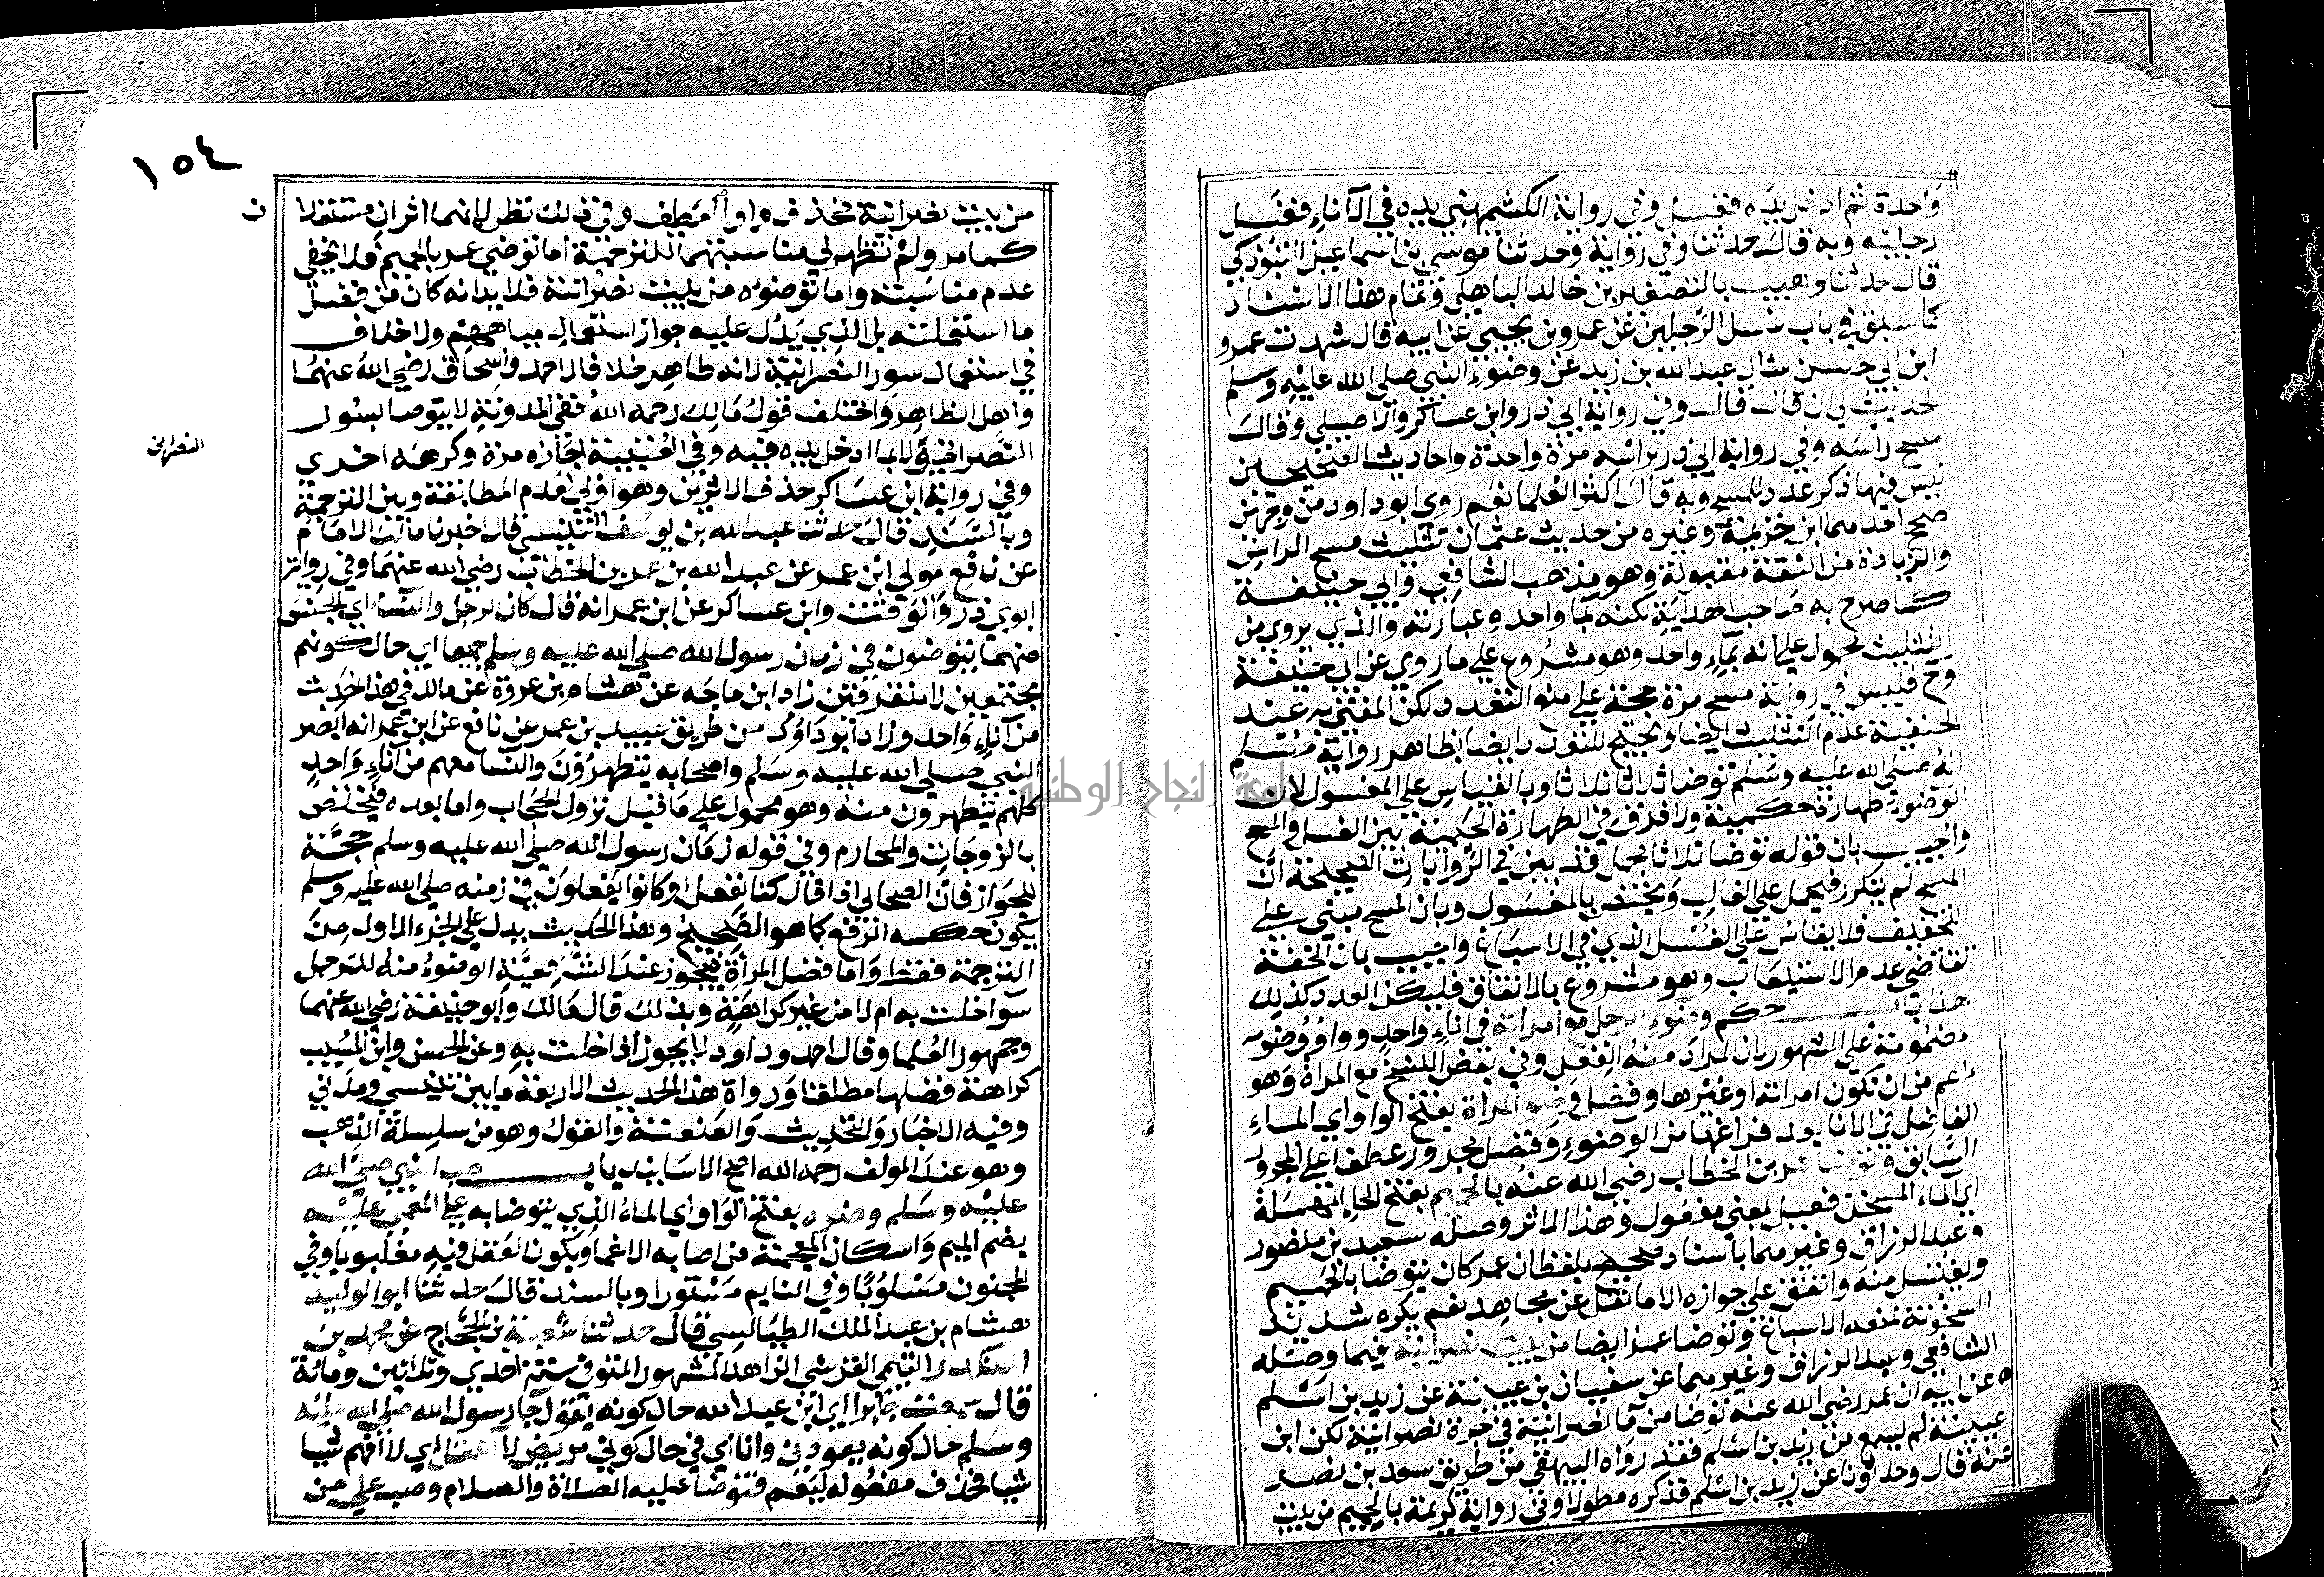 واحدة ثم ادخل يده فغسل وفي رواية الكشميهني يديه في الاناء فغسل
رجليه وبه قال حدثنا وفي رواية وحدثنا موسى بن اسماعيل التبوذكي
قال حدثنا وهيب بالتصغير بن خالد الباهلي وتمام هذا الاسناد
كما سبق في باب غسل الرجلين عن عمرو بن يحيى عن ابيه قال شهدت عمرو
ابن ابي حسن سال عبد الله بن زيد عن وضوء النبي صلى الله عليه وسلم
الحديث الى ان قال قال وفي رواية ابي ذر وابن عساكر والاصيلي وقال
مسح راسه وفي رواية ابي ذر براسه مرة واحدة واحاديث الصحيحين
ليس فيها ذكر عدد للمسح وبه قال اكثر العلما نعم روى ابو داود من وجهين
صحح احدهما ابن خزيمة وغيره من حديث عثمان تثليث مسح الراس
والزيادة من الثقة مقبولة وهو مذهب الشافعي وابي حنيفة
كما صرح به صاحب الهداية لكنه بما واحد وعبارته والذي يروى من
التثليث محمول على انه بماء واحد وهو مشروع على ما روي عن ابي حنيفة
وح فليس في رواية مسح مرة حجة على منع التعدد لكن المفتى به عند
الحنفية عدم التثليث ايضا ويحتج للتعدد ايضا بظاهر رواية مسلم
انه صلى الله عليه وسلم توضا ثلاثا ثلاثا وبالقياس على المغسول لان
الوضوء طهارة حكمية ولا فرق في الطهارة الحكمية بين الغسل والمسح
واجيب بان قوله توضا ثلاثا مجمل قد بين في الروايات الصحيحة ان
المسح لم يتكرر فيحمل على الغالب ويختص بالمغسول وبان المسح مبني على
التخفيف فلا يقاس على الغسل الذي في الاسباغ واجيب بان الخفة
تقتضي عدم الاستيعاب وهو مشروع بالاتفاق فليكن العدد كذلك
هذا باب حكم وضوء الرجل مع امراته في اناء واحد وواو وضوء
مضمومة على المشهور لان المراد منه الفعل وفي بعض النسخ مع المراة وهو
اعم من ان تكون امراته او غيرها وفضل وضوء المراة بفتح الواو اي الماء
الفاضل في الانا بعد فراغها من الوضوء وفضل مجرور عطفا على المجرور
السابق وتوضا عمر بن الخطاب رضي الله عنه بالحميم بفتح الحاء المهملة
اي الماء المسخن فعيل بمعنى مفعول وهذا الاثر وصله سعيد بن منصور
وعبد الرزاق وغيرهما باسناد صحيح بلفظ ان عمر كان يتوضا بالحميم
ويغتسل منه واتفق على جوازه الا ما نقل عن مجاهد نعم يكره شديد
السخونة لمنعه الاسباغ وتوضا عمر ايضا من بيت نصرانية فيما وصله
الشافعي وعبد الرزاق وغيرهما عن سفيان بن عيينة عن زيد بن اسلم
عن ابيه ان عمر رضي الله عنه توضا من ما نصرانية في جرة نصرانية لكن ابن
عيينة لم يسمع من زيد بن اسلم فقد رواه البيهقي من طريق سعد بن نصر
عنه قال وحدثونا عن زيد بن اسلم فذكره مطولا وفي رواية كريمة بالحميم من بيت
١٥٤
من بيت نصرانية بحذف واو العطف وفي ذلك نظر لانهما اثران مستقلان
كما مر ولم تظهر لي مناسبتهما للترجمة اما توضي عمر بالحميم فلا يخفى
عدم مناسبته واما توضوءه من بيت نصرانية فلا يدل انه كان من فضل
ما استعملته بل الذي يدل عليه جواز استعمال مياههم ولا خلاف
في استعمال سور النصرانية لانه طاهر خلا قال احمد واسحاق رضي الله عنهما
واهل الظاهر واختلف قول مالك رحمه الله ففي المدونة لا يتوضا بسور
النصراني
النصرانية ولا بما ادخل يده فيه وفي العتبية اجازه مرة وكرهه اخرى
وفي رواية ابن عساكر حذف الاثرين وهو اولى لعدم المطابقة وبين الترجمة
وبالسند قال حدثنا عبد الله بن يوسف التنيسي قال اخبرنا مالك الامام
عن نافع مولى ابن عمر عن عبد الله بن عمر بن الخطاب رضي الله عنهما وفي رواية
ابوي ذر والوقت وابن عساكر عن ابن عمر انه قال كان الرجل والنسا اي الجنس
منهما يتوضون في زمان رسول الله صلى الله عليه وسلم جميعا اي حال كونهم
مجتمعين لا متفرقين زاد ابن ماجه عن هشام بن عروة عن مالك في هذا الحديث
من اناء واحد وزاد ابو داود من طريق عبيد بن عمر عن نافع عن ابن عمر انه ابصر
النبي صلى الله عليه وسلم واصحابه يتطهرون والنسا معهم من اناء واحد
كلهم يتطهرون منه وهو محمول على ما قبل نزول الحجاب واما بعده فيختص
بالزوجات والمحارم وفي قوله زمان رسول الله صلى الله عليه وسلم حجة
للجواز فان الصحابي اذا قال كنا نفعل او كانوا يفعلون في زمنه صلى الله عليه وسلم
يكون حكمه الرفع كما هو الصحيح وهذا الحديث يدل على الجزء الاول من
الترجمة فقط واما فضل المراة فيجوز عند الشافعية الوضوء منه للرجل
سوا خلت به ام لا من غير كراهة وبذلك قال مالك وابو حنيفة رضي الله عنهما
وجمهور العلما وقال احمد وداود لا يجوز اذا خلت به وعن الحسن وابن المسيب
كراهة فضلها مطلقا ورواة هذا الحديث الاربعة ما بين تنيسي ومدني
وفيه الاخبار والتحديث والعنعنة والقول وهو من سلسلة الذهب
وهو عند المولف رحمه الله اصح الاسانيد باب صب النبي صلى الله
عليه وسلم وضوءه بفتح الواو اي الماء الذي يتوضا به على المغمى عليه
بضم الميم واسكان المعجمة من اصابه الاغما ويكون العقل فيه مغلوبا وفي
المجنون مسلوبا وفي النايم مستورا وبالسند قال حدثنا ابو الوليد
هشام بن عبد الملك الطيالسي قال حدثنا شعبة بن الحجاج عن محمد بن
المنكدر التيمي القرشي الزاهد المشهور المتوفى سنة احدى وثلاثين ومائة
قال سمعت جابرا اي ابن عبد الله حال كونه يقول جاء رسول الله صلى الله عليه
وسلم حال كونه يعودني وانا اي في حال كوني مريض لا اعقل اي لا افهم شيا
شيا فحذف مفعوله ليعم فتوضا عليه الصلاة والسلام وصب علي من